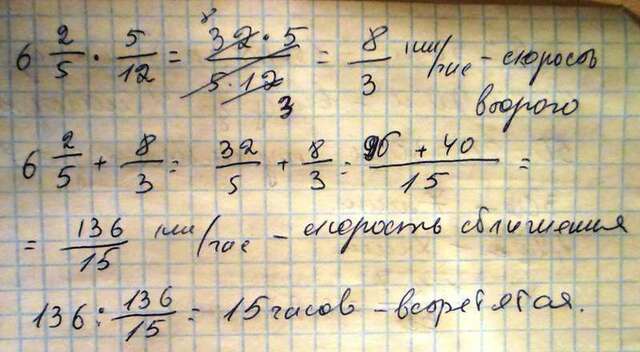 6 2/5 · 5/12 = 32·5/5·12 = 8/3 км/час - скорость
второго
6 2/5 + 8/3 = 32/5 + 8/3 = 96 + 40/15 =
= 136/15 км/час - скорость сближения
136 : 136/15 = 15 часов - встретятся.